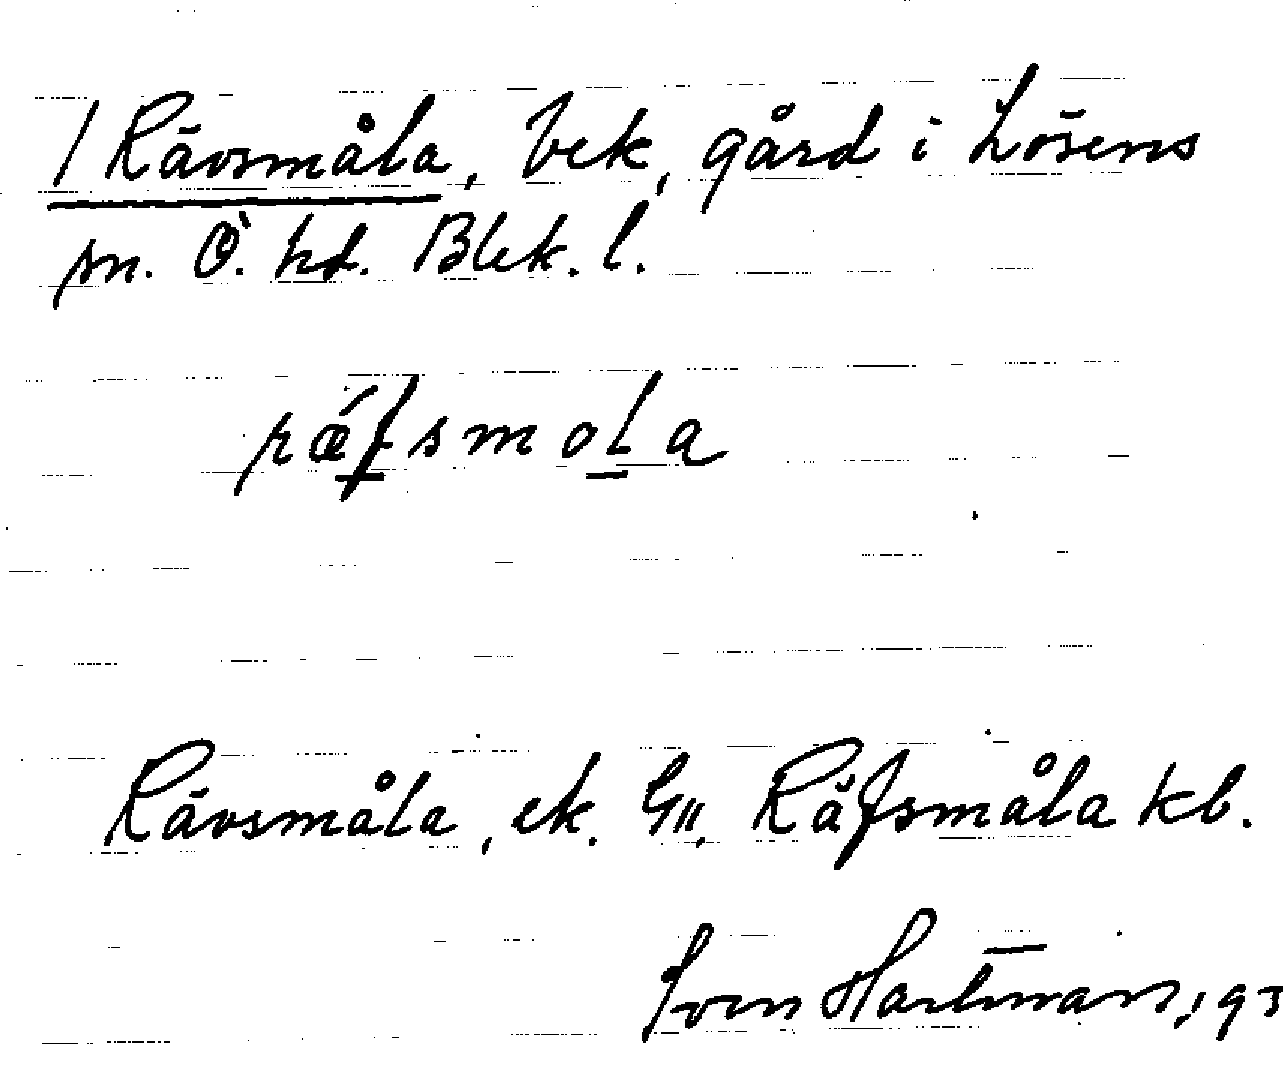 / Rävsmåla, bek, gård i Lösens
sn. Ö. hd. Blek. l.
ræ´fsmola
Rävsmåla, ek. G11, Räfsmåla kb.
Sven Hartman, 193